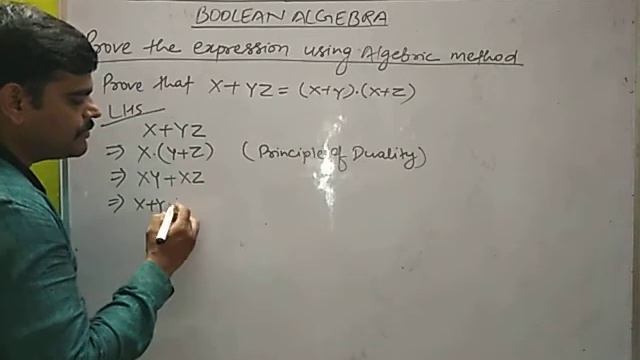 BOOLEAN ALGEBRA
Prove the expression using Algebric method
Prove that X+YZ = (X+Y).(X+Z)
LHS
X+YZ
⇒ X.(Y+Z) (Principle of Duality)
⇒ XY+XZ
⇒ X+Y